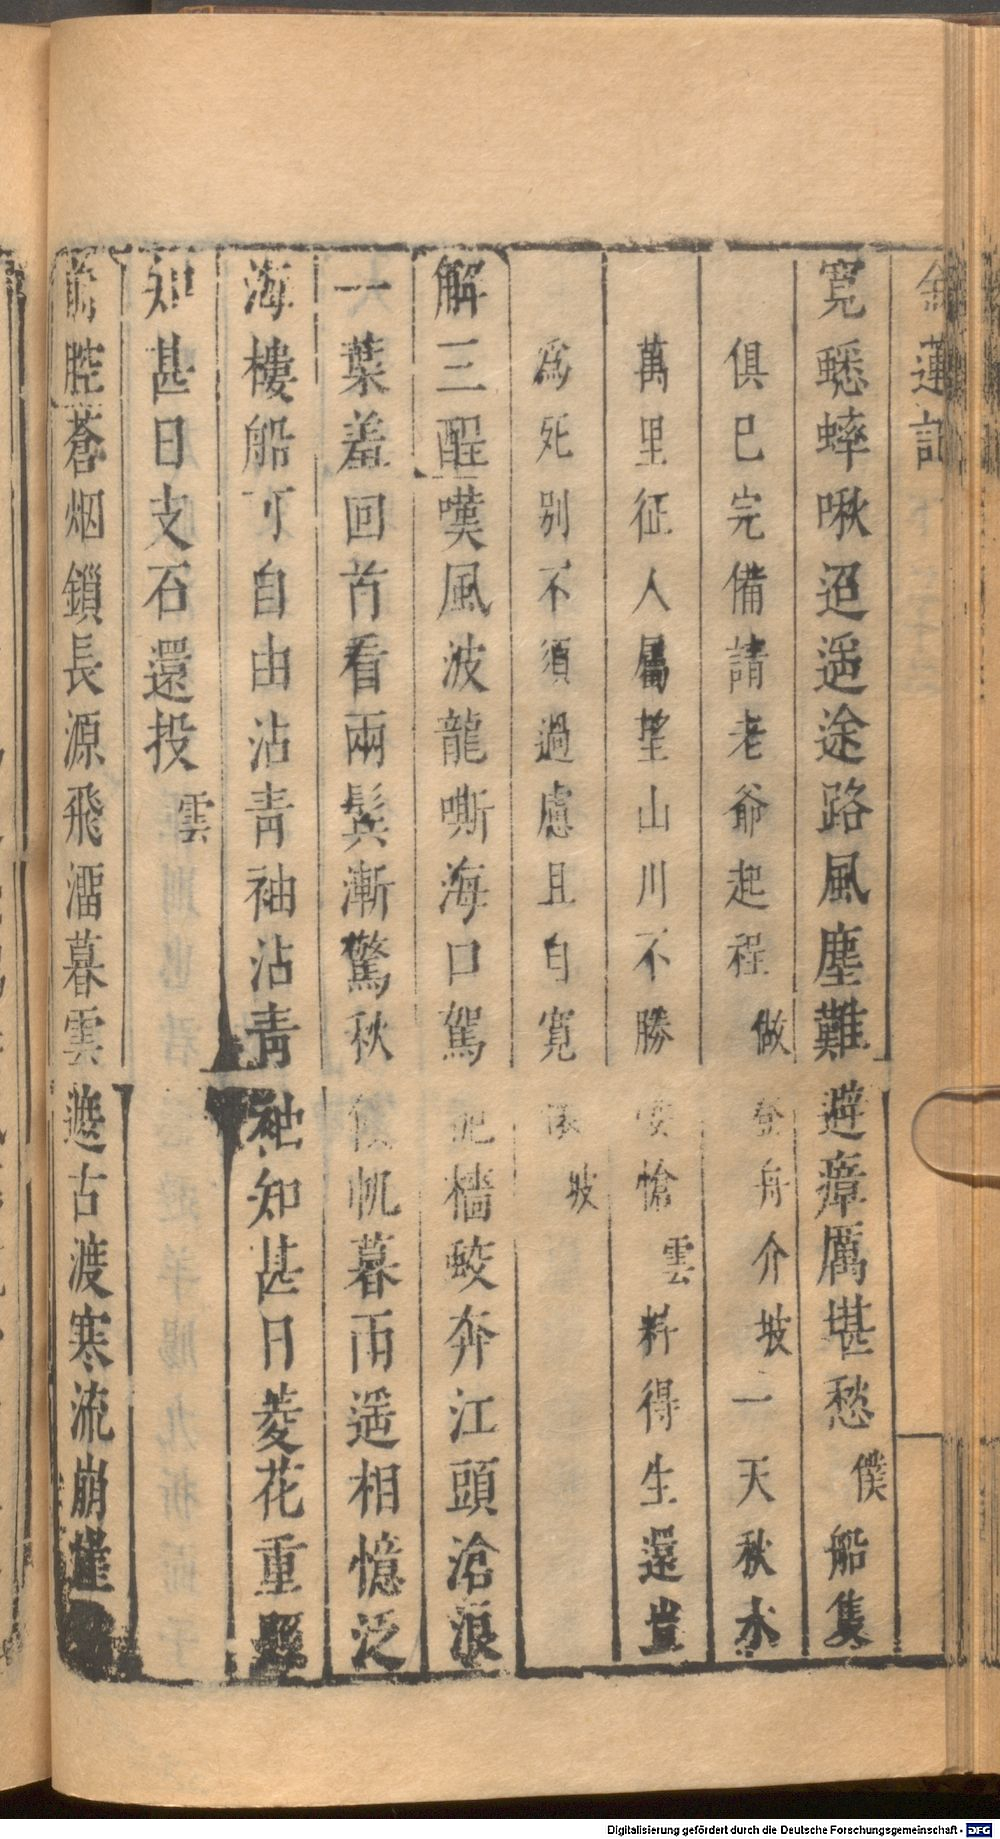 金蓮記
寬蟋蟀啾迢遥途路風塵難避瘴厲堪愁僕船隻
俱已完備請老爺起程做登舟介坡一天秋水
萬里征人屬望山川不勝悽愴雲料得生還豈
為死別不須過慮且自寬坡
解三酲嘆風波龍嘶海口駕檣蛟奔江頭滄浪
一葉羞回首看兩鬢漸驚秋帆暮雨遥相憶泛
海樓船可自由沾青袖沾青袖知甚日菱花重照
知甚日支石還投雲
前腔蒼烟鎖長源飛溜暮雲遮古渡寒流崩崖
Digitalisierung gefördert durch die Deutsche Forschungsgemeinschaft - DFG